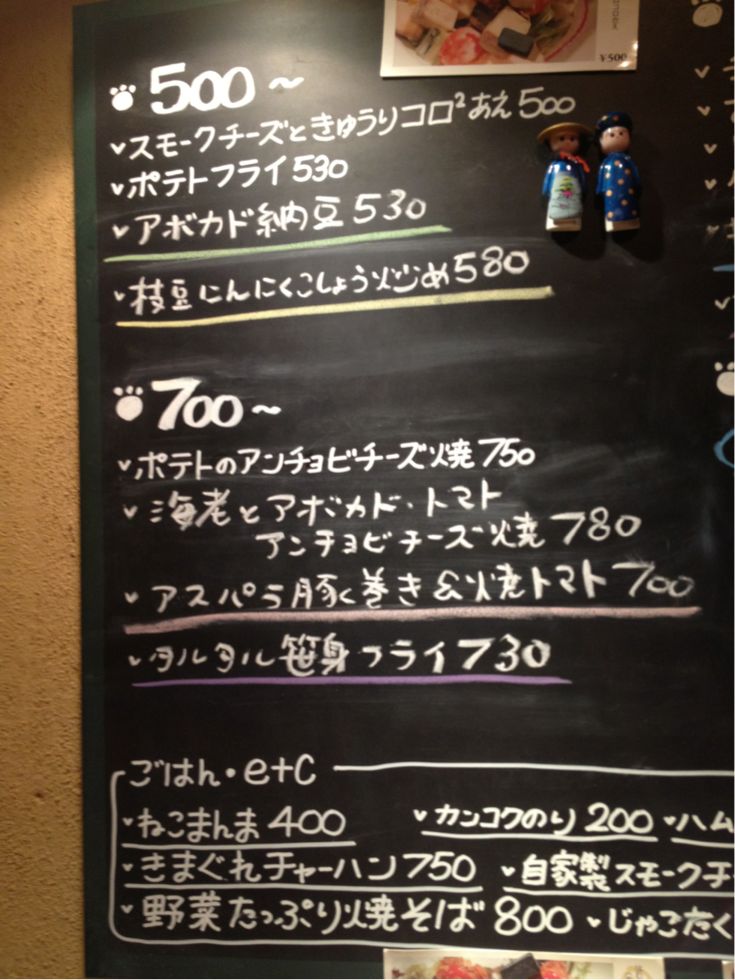 ¥500
500～
スモークチーズときゅうりコロ²あえ 500
ポテトフライ 530
アボカド納豆 530
枝豆にんにくこしょう炒め 580
700～
ポテトのアンチョビチーズ焼 750
海老とアボカド・トマト
アンチョビチーズ焼 780
アスパラ豚く巻き&焼トマト 700
タルタル笹身フライ 730
ごはん・etc
ねこまんま 400 カンコクのり 200 ハム
きまぐれチャーハン 750 自家製スモークチ
野菜たっぷり焼そば 800 じゃこたく